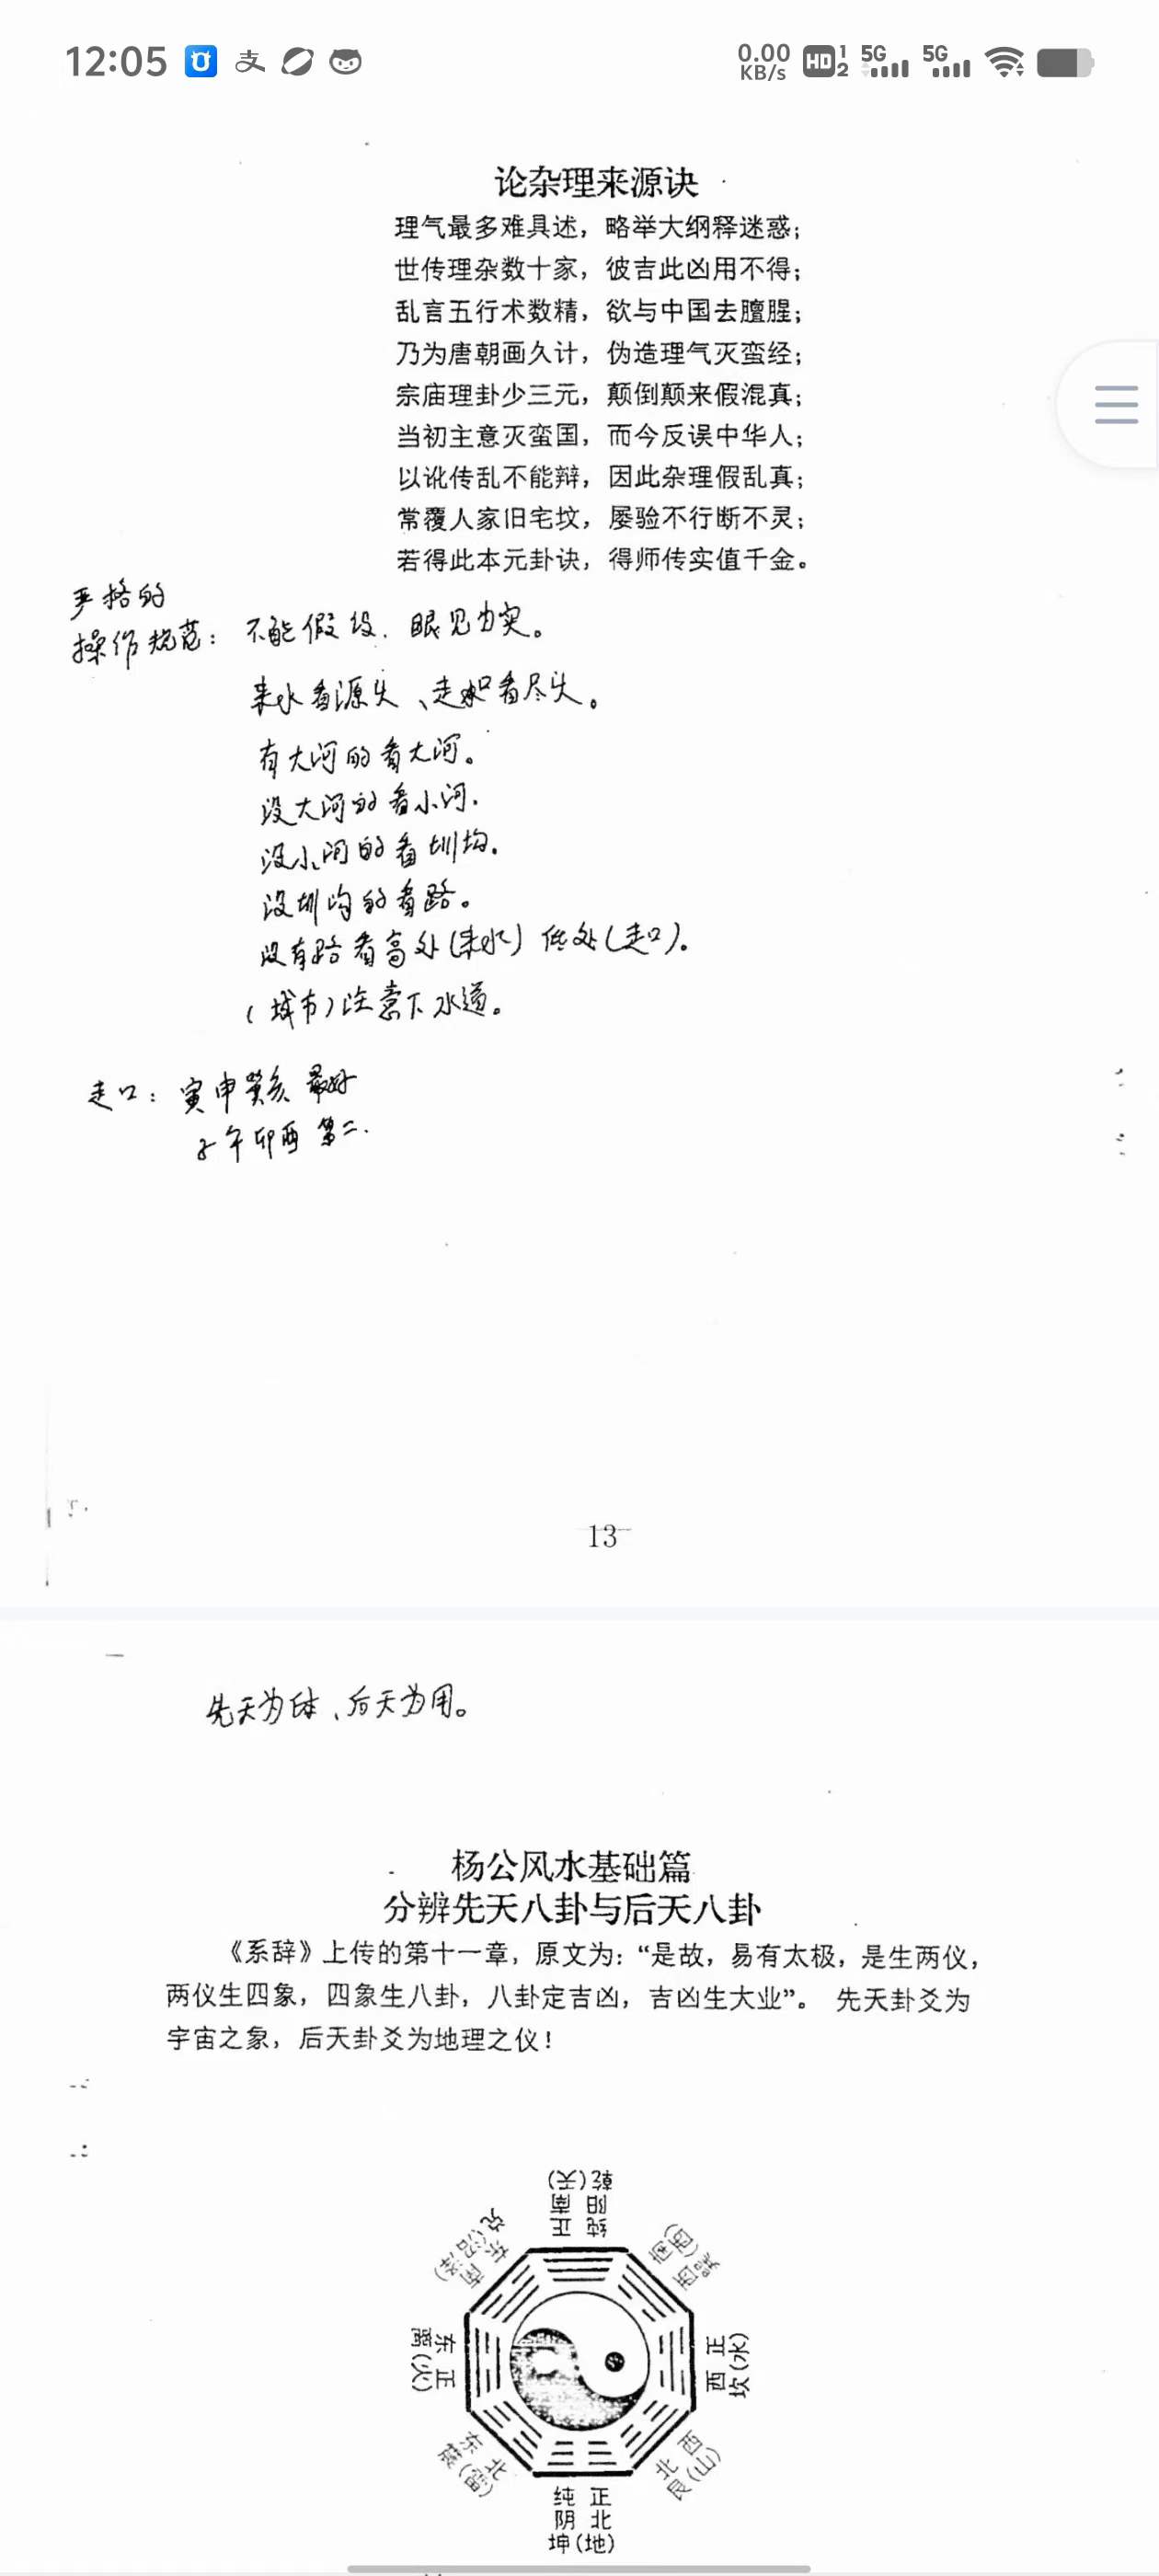 12:05
支
0.00 KB/s HD 1 2 5G 5G
论杂理来源诀
理气最多难具述，略举大纲释迷惑；
世传理杂数十家，彼吉此凶用不得；
乱言五行术数精，欲与中国去膻腥；
乃为唐朝画久计，伪造理气灭蛮经；
宗庙理卦少三元，颠倒颠来假混真；
当初主意灭蛮国，而今反误中华人；
以讹传乱不能辩，因此杂理假乱真；
常覆人家旧宅坟，屡验不行断不灵；
若得此本元卦诀，得师传实值千金。
严格的
操作规范：不能假设．眼见为实。
来水看源头、走口看尽头。
有大河的看大河。
没大河的看小河．
没小河的看圳沟．
没圳沟的看路。
没有路看高处(来水）低处(走口)。
（城市)注意下水道。
走口：寅申巽亥 最好
子午卯酉 第二．
13
先天为体、后天为用。
杨公风水基础篇
分辨先天八卦与后天八卦
《系辞》上传的第十一章，原文为：“是故，易有太极，是生两仪，
两仪生四象，四象生八卦，八卦定吉凶，吉凶生大业”。 先天卦爻为
宇宙之象，后天卦爻为地理之仪！
乾(天)
纯阳
正南
兑(沼泽)
东南
西南
离(火)
正东
正西
坎(水)
震(雷)
东北
西北
艮(山)
纯阴
正北
坤(地)